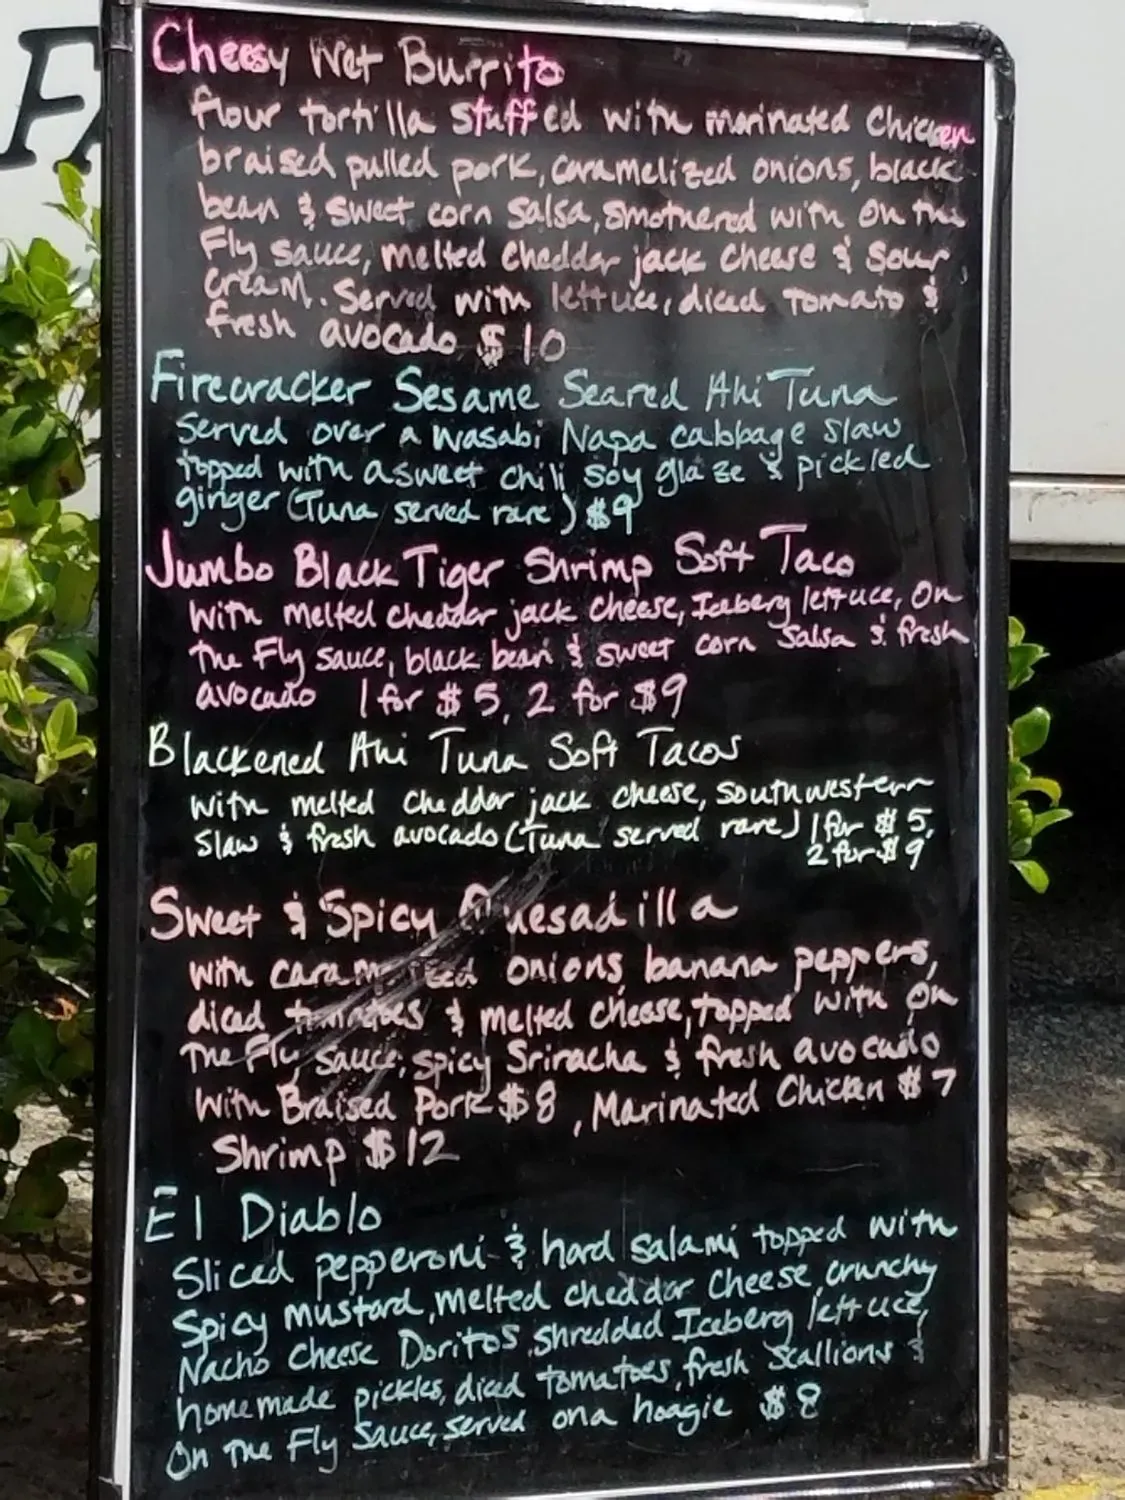 Fa
Cheesy Wet Burrito
flour tortilla stuffed with marinated chicken
braised pulled pork, caramelized onions, black
bean & sweet corn salsa, smothered with On the
Fly sauce, melted cheddar jack cheese & sour
cream. Served with lettuce, diced tomato &
fresh avocado $10
Firecracker Sesame Seared Ahi Tuna
Served over a wasabi Napa cabbage slaw
topped with a sweet chili soy glaze & pickled
ginger (Tuna served rare) $9
Jumbo Black Tiger Shrimp Soft Taco
with melted cheddar jack cheese, Iceberg lettuce, On
the Fly sauce, black bean & sweet corn salsa & fresh
avocado 1 for $5, 2 for $9
Blackened Ahi Tuna Soft Tacos
with melted cheddar jack cheese, southwestern
slaw & fresh avocado (Tuna served rare) 1 for $5,
2 for $9
Sweet & Spicy Quesadilla
with caramelized onions, banana peppers,
diced tomatoes & melted cheese, topped with On
The Fly sauce, spicy Sriracha & fresh avocado
with Braised Pork $8, Marinated Chicken $7
Shrimp $12
El Diablo
Sliced pepperoni & hard salami topped with
Spicy mustard, melted cheddar cheese, crunchy
Nacho cheese Doritos, shredded Iceberg lettuce,
homemade pickles, diced tomatoes, fresh scallions &
On The Fly Sauce, served on a hoagie $8